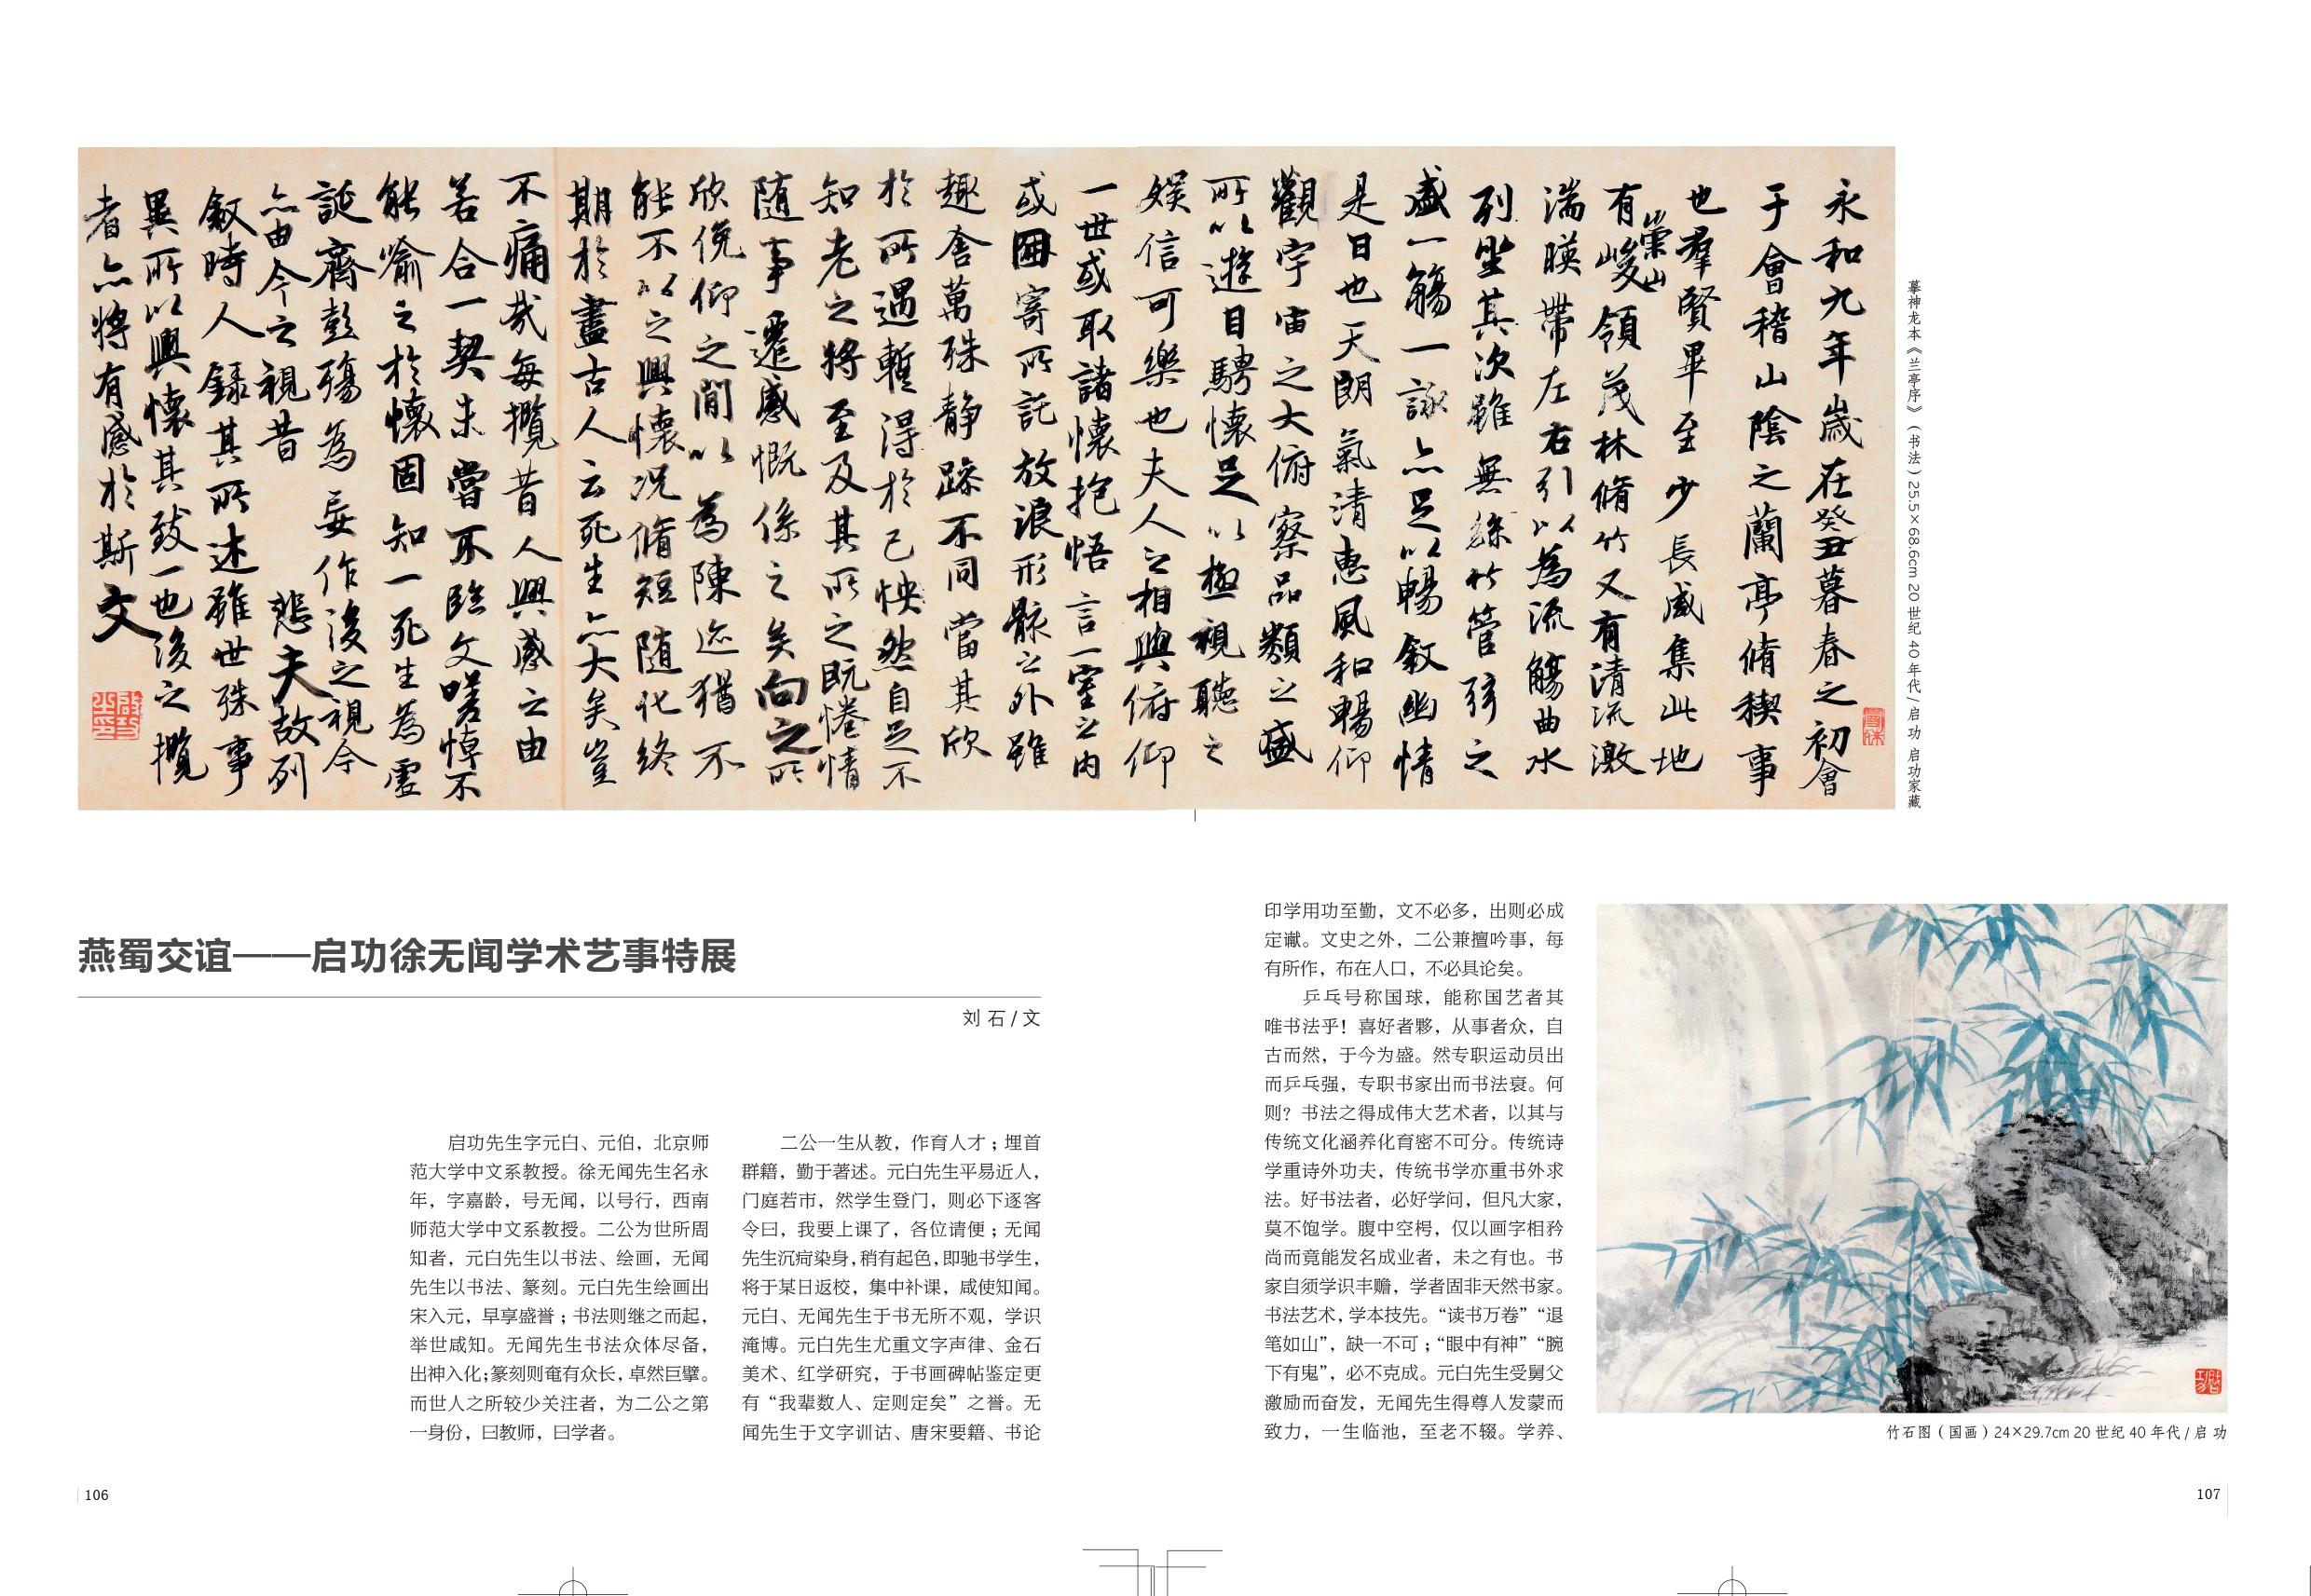 永和九年歲在癸丑暮春之初會
于會稽山陰之蘭亭脩稧事
也羣賢畢至少長咸集此地
有崇山峻領茂林脩竹又有清流激
湍暎帶左右引以為流觴曲水
列坐其次雖無絲竹管弦之
盛一觴一詠亦足以暢叙幽情
是日也天朗氣清惠風和暢仰
觀宇宙之大俯察品類之盛
所以遊目騁懷足以極視聽之
娛信可樂也夫人之相與俯仰
一世或取諸懷抱悟言一室之內
或因寄所託放浪形骸之外雖
趣舍萬殊静躁不同當其欣
於所遇暫得於己怏然自足不
知老之將至及其所之既惓情
隨事遷感慨係之矣向之所
欣俛仰之閒以為陳迹猶不
能不以之興懷況脩短隨化終
期於盡古人云死生亦大矣豈
不痛哉每攬昔人興感之由
若合一契未嘗不臨文嗟悼不
能喻之於懷固知一死生為虛
誕齊彭殤為妄作後之視今
亦由今之視昔悲夫故列
叙時人錄其所述雖世殊事
異所以興懷其致一也後之攬
者亦將有感於斯文
摹神龙本《兰亭序》（书法）25.5×68.6cm 20 世纪 40 年代 / 启 功 启功家藏
燕蜀交谊——启功徐无闻学术艺事特展
刘 石 / 文
启功先生字元白、元伯，北京师
范大学中文系教授。徐无闻先生名永
年，字嘉龄，号无闻，以号行，西南
师范大学中文系教授。二公为世所周
知者，元白先生以书法、绘画，无闻
先生以书法、篆刻。元白先生绘画出
宋入元，早享盛誉；书法则继之而起，
举世咸知。无闻先生书法众体尽备，
出神入化；篆刻则奄有众长，卓然巨擘。
而世人之所较少关注者，为二公之第
一身份，曰教师，曰学者。
二公一生从教，作育人才；埋首
群籍，勤于著述。元白先生平易近人，
门庭若市，然学生登门，则必下逐客
令曰，我要上课了，各位请便；无闻
先生沉疴染身，稍有起色，即驰书学生，
将于某日返校，集中补课，咸使知闻。
元白、无闻先生于书无所不观，学识
淹博。元白先生尤重文字声律、金石
美术、红学研究，于书画碑帖鉴定更
有“我辈数人、定则定矣”之誉。无
闻先生于文字训诂、唐宋要籍、书论
印学用功至勤，文不必多，出则必成
定谳。文史之外，二公兼擅吟事，每
有所作，布在人口，不必具论矣。
乒乓号称国球，能称国艺者其
唯书法乎！喜好者夥，从事者众，自
古而然，于今为盛。然专职运动员出
而乒乓强，专职书家出而书法衰。何
则？书法之得成伟大艺术者，以其与
传统文化涵养化育密不可分。传统诗
学重诗外功夫，传统书学亦重书外求
法。好书法者，必好学问，但凡大家，
莫不饱学。腹中空枵，仅以画字相矜
尚而竟能发名成业者，未之有也。书
家自须学识丰赡，学者固非天然书家。
书法艺术，学本技先。“读书万卷”“退
笔如山”，缺一不可；“眼中有神”“腕
下有鬼”，必不克成。元白先生受舅父
激励而奋发，无闻先生得尊人发蒙而
致力，一生临池，至老不辍。学养、
竹石图（国画）24×29.7cm 20 世纪 40 年代 / 启 功
106
107